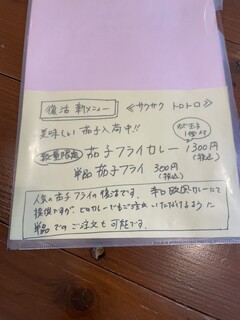 復活 新メニュー 《サクサク トロトロ》
美味しい 茄子入荷中!!
数量限定 茄子フライカレー 1300円
(税込)
単品 茄子フライ 300円
(税込)
人気の茄子フライの復活です。辛口欧風カレーにて
提供ですが、どのカレーでもご注文いただけるように
単品でのご注文も可能です。